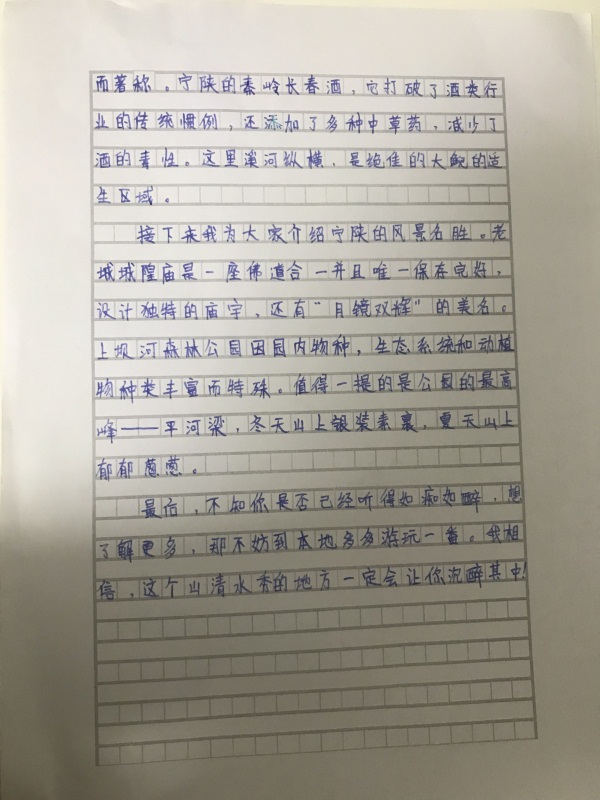 而著称。宁陕的秦岭长春酒，它打破了酒类行
业的传统惯例，还添加了多种中草药，减少了
酒的毒性。这里溪河纵横，是绝佳的大鲵的适
生区域。
接下来我为大家介绍宁陕的风景名胜。老
城城隍庙是一座佛道合一并且唯一保存完好，
设计独特的庙宇，还有“月镜双辉”的美名。
上坝河森林公园因园内物种，生态系统和动植
物种类丰富而特殊。值得一提的是公园的最高
峰——平河梁，冬天山上银装素裹，夏天山上
郁郁葱葱。
最后，不知你是否已经听得如痴如醉，想
了解更多，那不妨到本地多多游玩一番。我相
信，这个山清水秀的地方一定会让你沉醉其中！